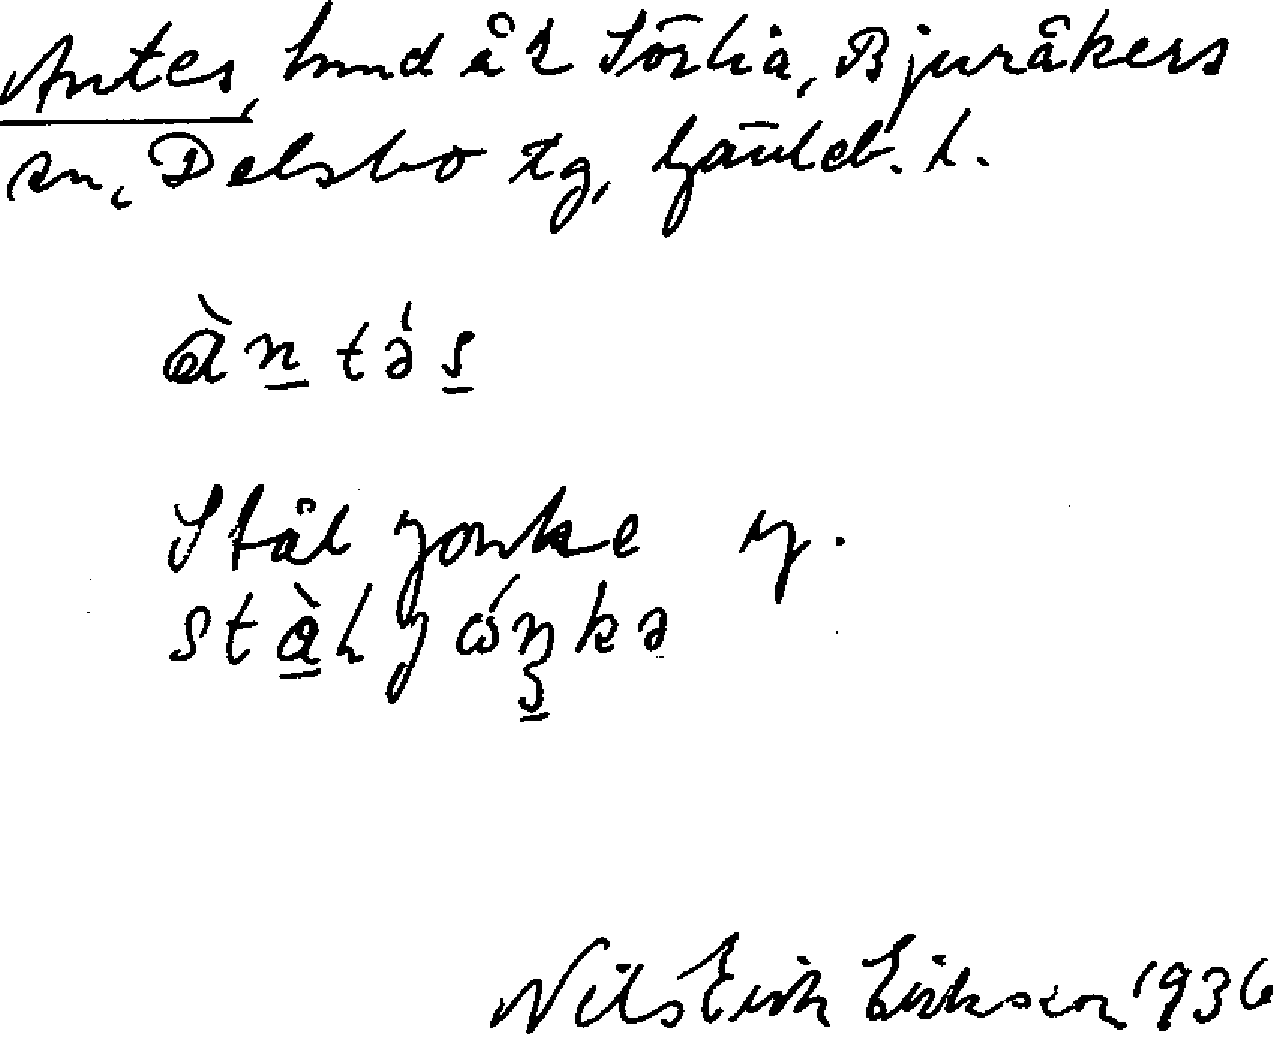 Antes, hmd å 2 Sörlia, Bjuråkers
sn, Delsbo tg, Gävleb. l.
àntə́s
Stål gonke
stàlgóŋkə
Nils Erik Erikson 1936